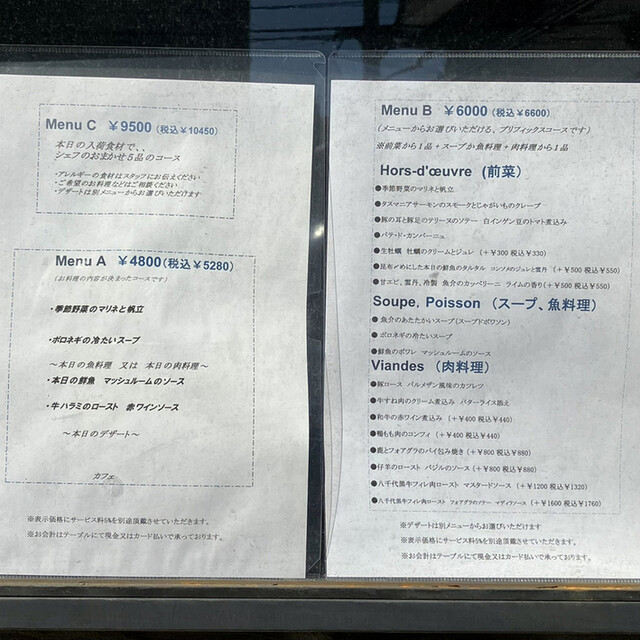 Menu C ￥9500（税込￥10450）
本日の入荷食材で、、
シェフのおまかせ5品のコース
・アレルギーの食材はスタッフにお伝えください
・ご希望のお料理などはご相談ください
・デザートは別メニューからお選びいただけます
Menu A ￥4800（税込￥5280）
（お料理の内容が決まったコースです）
・季節野菜のマリネと帆立
・ポロネギの冷たいスープ
～本日の魚料理 又は 本日の肉料理～
・本日の鮮魚 マッシュルームのソース
・牛ハラミのロースト 赤ワインソース
～本日のデザート～
カフェ
※表示価格にサービス料5%を別途頂戴させていただきます。
※お会計はテーブルにて現金又はカード払いで承っております。
Menu B ￥6000（税込￥6600）
（メニューからお選びいただける、プリフィックスコースです）
※前菜から1品 + スープか魚料理 + 肉料理から1品
Hors-d'œuvre （前菜）
●季節野菜のマリネと帆立
●タスマニアサーモンのスモークとじゃがいものクレープ
●豚の耳と豚足のテリーヌのソテー 白インゲン豆のトマト煮込み
●パテ・ド・カンパーニュ
●生牡蠣 牡蠣のクリームとジュレ （+￥300 税込￥330）
●昆布〆めにした本日の鮮魚のタルタル コンソメのジュレと雲丹 （+￥500 税込￥550）
●甘エビ、雲丹、冷製 魚介のカッペリーニ ライムの香り（+￥500 税込￥550）
Soupe, Poisson （スープ、魚料理）
●魚介のあたたかいスープ（スープドポワソン）
●ポロネギの冷たいスープ
●鮮魚のポワレ マッシュルームのソース
Viandes （肉料理）
●豚ロース パルメザン風味のカツレツ
●牛すね肉のクリーム煮込み バターライス添え
●和牛の赤ワイン煮込み （+￥400 税込￥440）
●鴨もも肉のコンフィ （+￥400 税込￥440）
●鹿とフォアグラのパイ包み焼き （+￥800 税込￥880）
●仔羊のロースト バジルのソース （+￥800 税込￥880）
●八千代黒牛フィレ肉ロースト マスタードソース （+￥1200 税込￥1320）
●八千代黒牛フィレ肉ロースト フォアグラのソテー マディラソース （+￥1600 税込￥1760）
※デザートは別メニューからお選びいただけます
※表示価格にサービス料5%を別途頂戴させていただきます。
※お会計はテーブルにて現金又はカード払いで承っております。